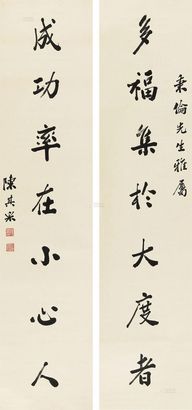 秉倫先生雅屬
多福集於大度者
成功率在小心人
陳其采